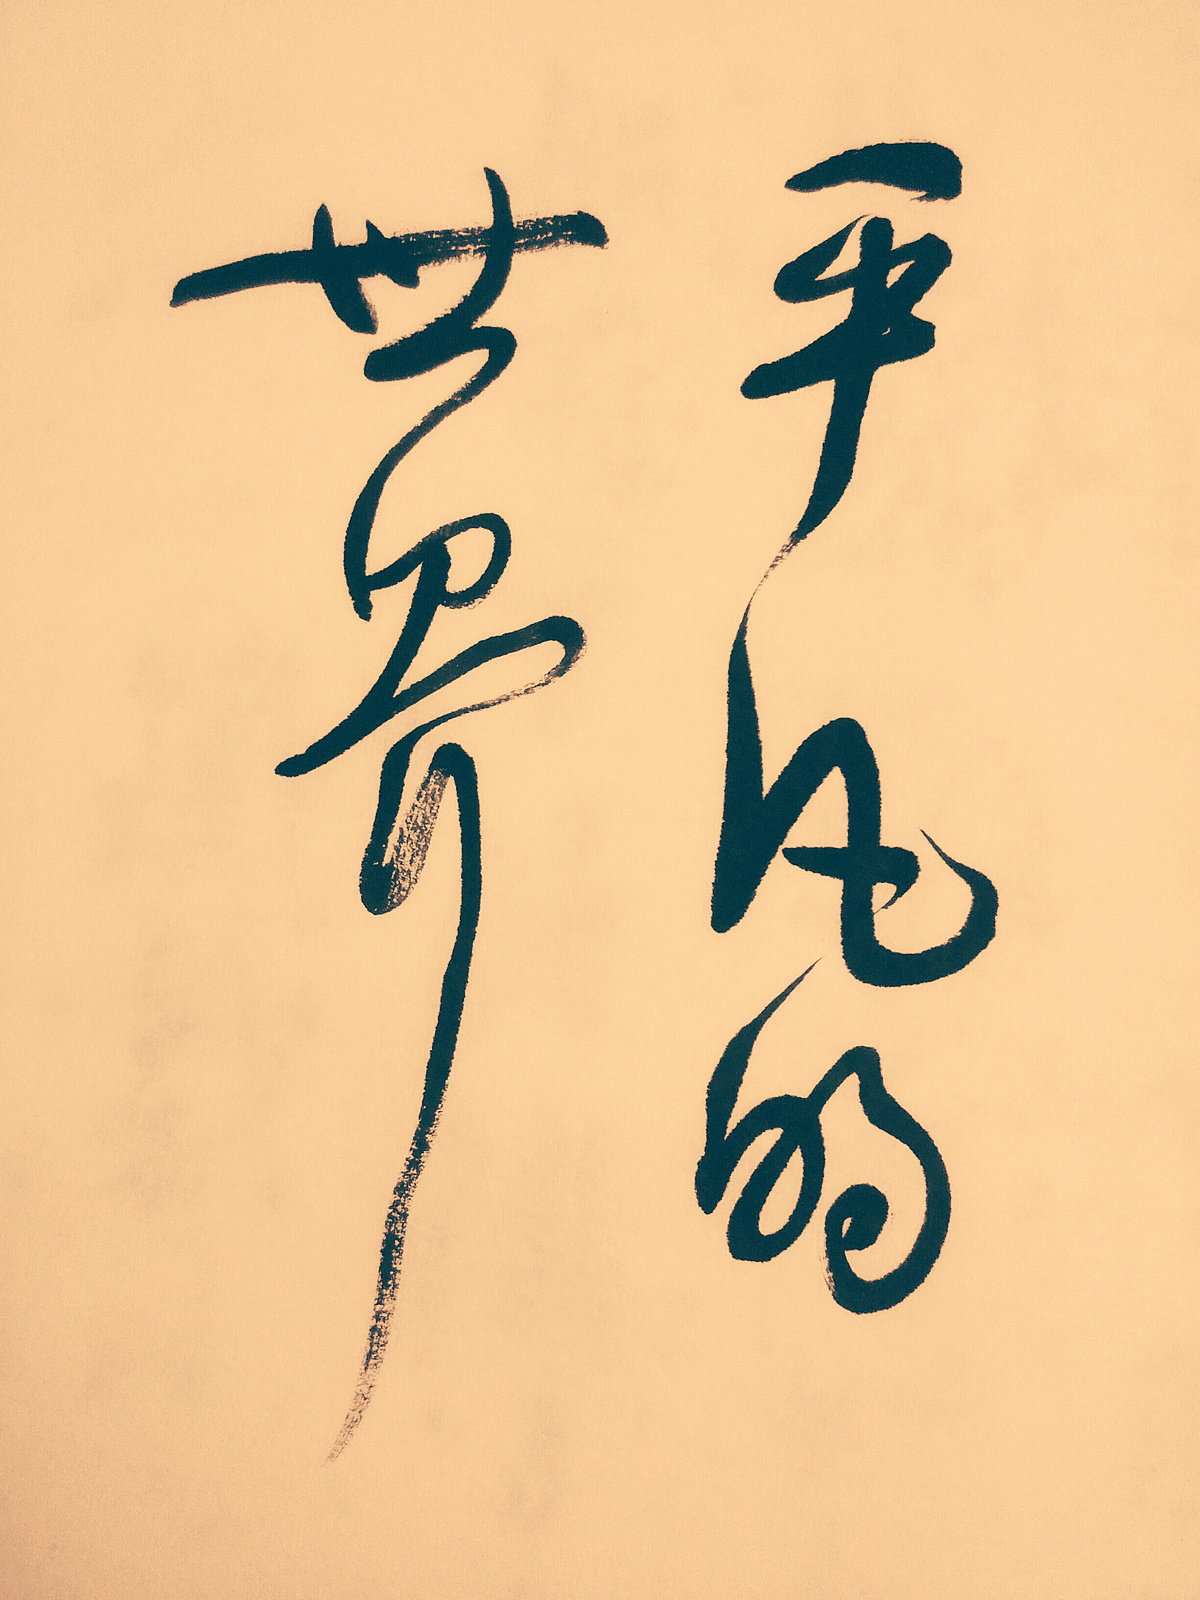 平凡的
世界